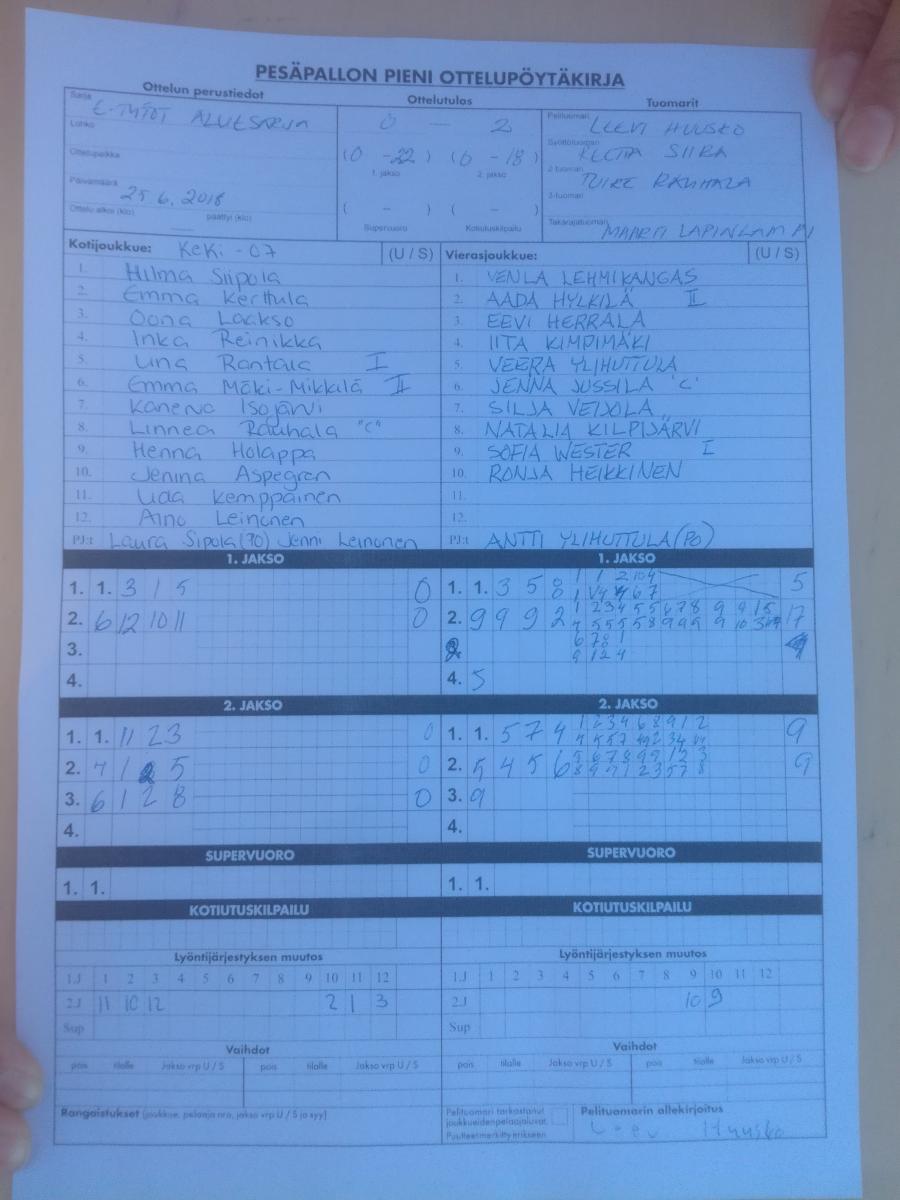 PESÄPALLON PIENI OTTELUPÖYTÄKIRJA
Ottelun perustiedot Ottelutulos Tuomarit
Sarja E-TYTÖT ALUESARJA
Lohko
Ottelupaikka
Päivämäärä 25.6.2018
Ottelu alkoi (klo) päättyi (klo)
0 - 2
(0 - 22) (0 - 18)
1. jakso 2. jakso
( - ) ( - )
Supervuoro Kotiutuskilpailu
Pelituomari LEEVI HUUSKO
Syöttötuomari SIIRA
2-tuomari TUIRE RAUHALA
3-tuomari
Takarajatuomari MAARIT LAPINLAMPI
Kotijoukkue: KeKi-07 (U / S)
1. Hilma Siipola
2. Emma Kerttula
3. Oona Laakso
4. Inka Reinikka
5. Una Rantala I
6. Emma Mäki-Mikkilä II
7. Kanerva Isojärvi
8. Linnea Rauhala "C"
9. Henna Holappa
10. Jenina Aspegren
11. Uda Kemppainen
12. Aino Leinonen
PJ:t Laura Siipola (PO) Jenni Leinonen
Vierasjoukkue: (U / S)
1. VENLA LEHMIKANGAS
2. AADA HYLKILÄ II
3. EEVI HERRALA
4. IITA KIMPIMÄKI
5. VEERA YLIHUTTULA
6. JENNA JUSSILA "C"
7. SILJA VEIJOLA
8. NATALIA KILPIJÄRVI
9. SOFIA WESTER I
10. RONJA HEIKKINEN
11.
12.
PJ:t ANTTI YLIHUTTULA (PO)
1. JAKSO
1. 1. 3 1 5 0
2. 6 12 10 11 0
3.
4.
1. JAKSO
1. 1. 3 5 8 5
2. 9 9 9 2 17
4. 5
2. JAKSO
1. 1. 11 2 3 0
2. 4 1 5 0
3. 6 1 2 8 0
4.
2. JAKSO
1. 1. 5 7 4 9
2. 5 4 5 6 9
3. 9
4.
SUPERVUORO
1. 1.
SUPERVUORO
1. 1.
KOTIUTUSKILPAILU
Lyöntijärjestyksen muutos
1.J 1 2 3 4 5 6 7 8 9 10 11 12
2.J 11 10 12 2 1 3
Sup
Vaihdot
pois tilalle Jakso vrp U / S pois tilalle Jakso vrp U / S
KOTIUTUSKILPAILU
Lyöntijärjestyksen muutos
1.J 1 2 3 4 5 6 7 8 9 10 11 12
2.J 10 9
Sup
Vaihdot
pois tilalle Jakso vrp U / S pois tilalle Jakso vrp U / S
Rangaistukset (joukkue, pelaaja nro, jakso vrp U / S ja syy)
Pelituomari tarkastanut
joukkueiden pelaajaluvat.
Puutteet merkitty erikseen
Pelituomarin allekirjoitus
Leevi Huusko